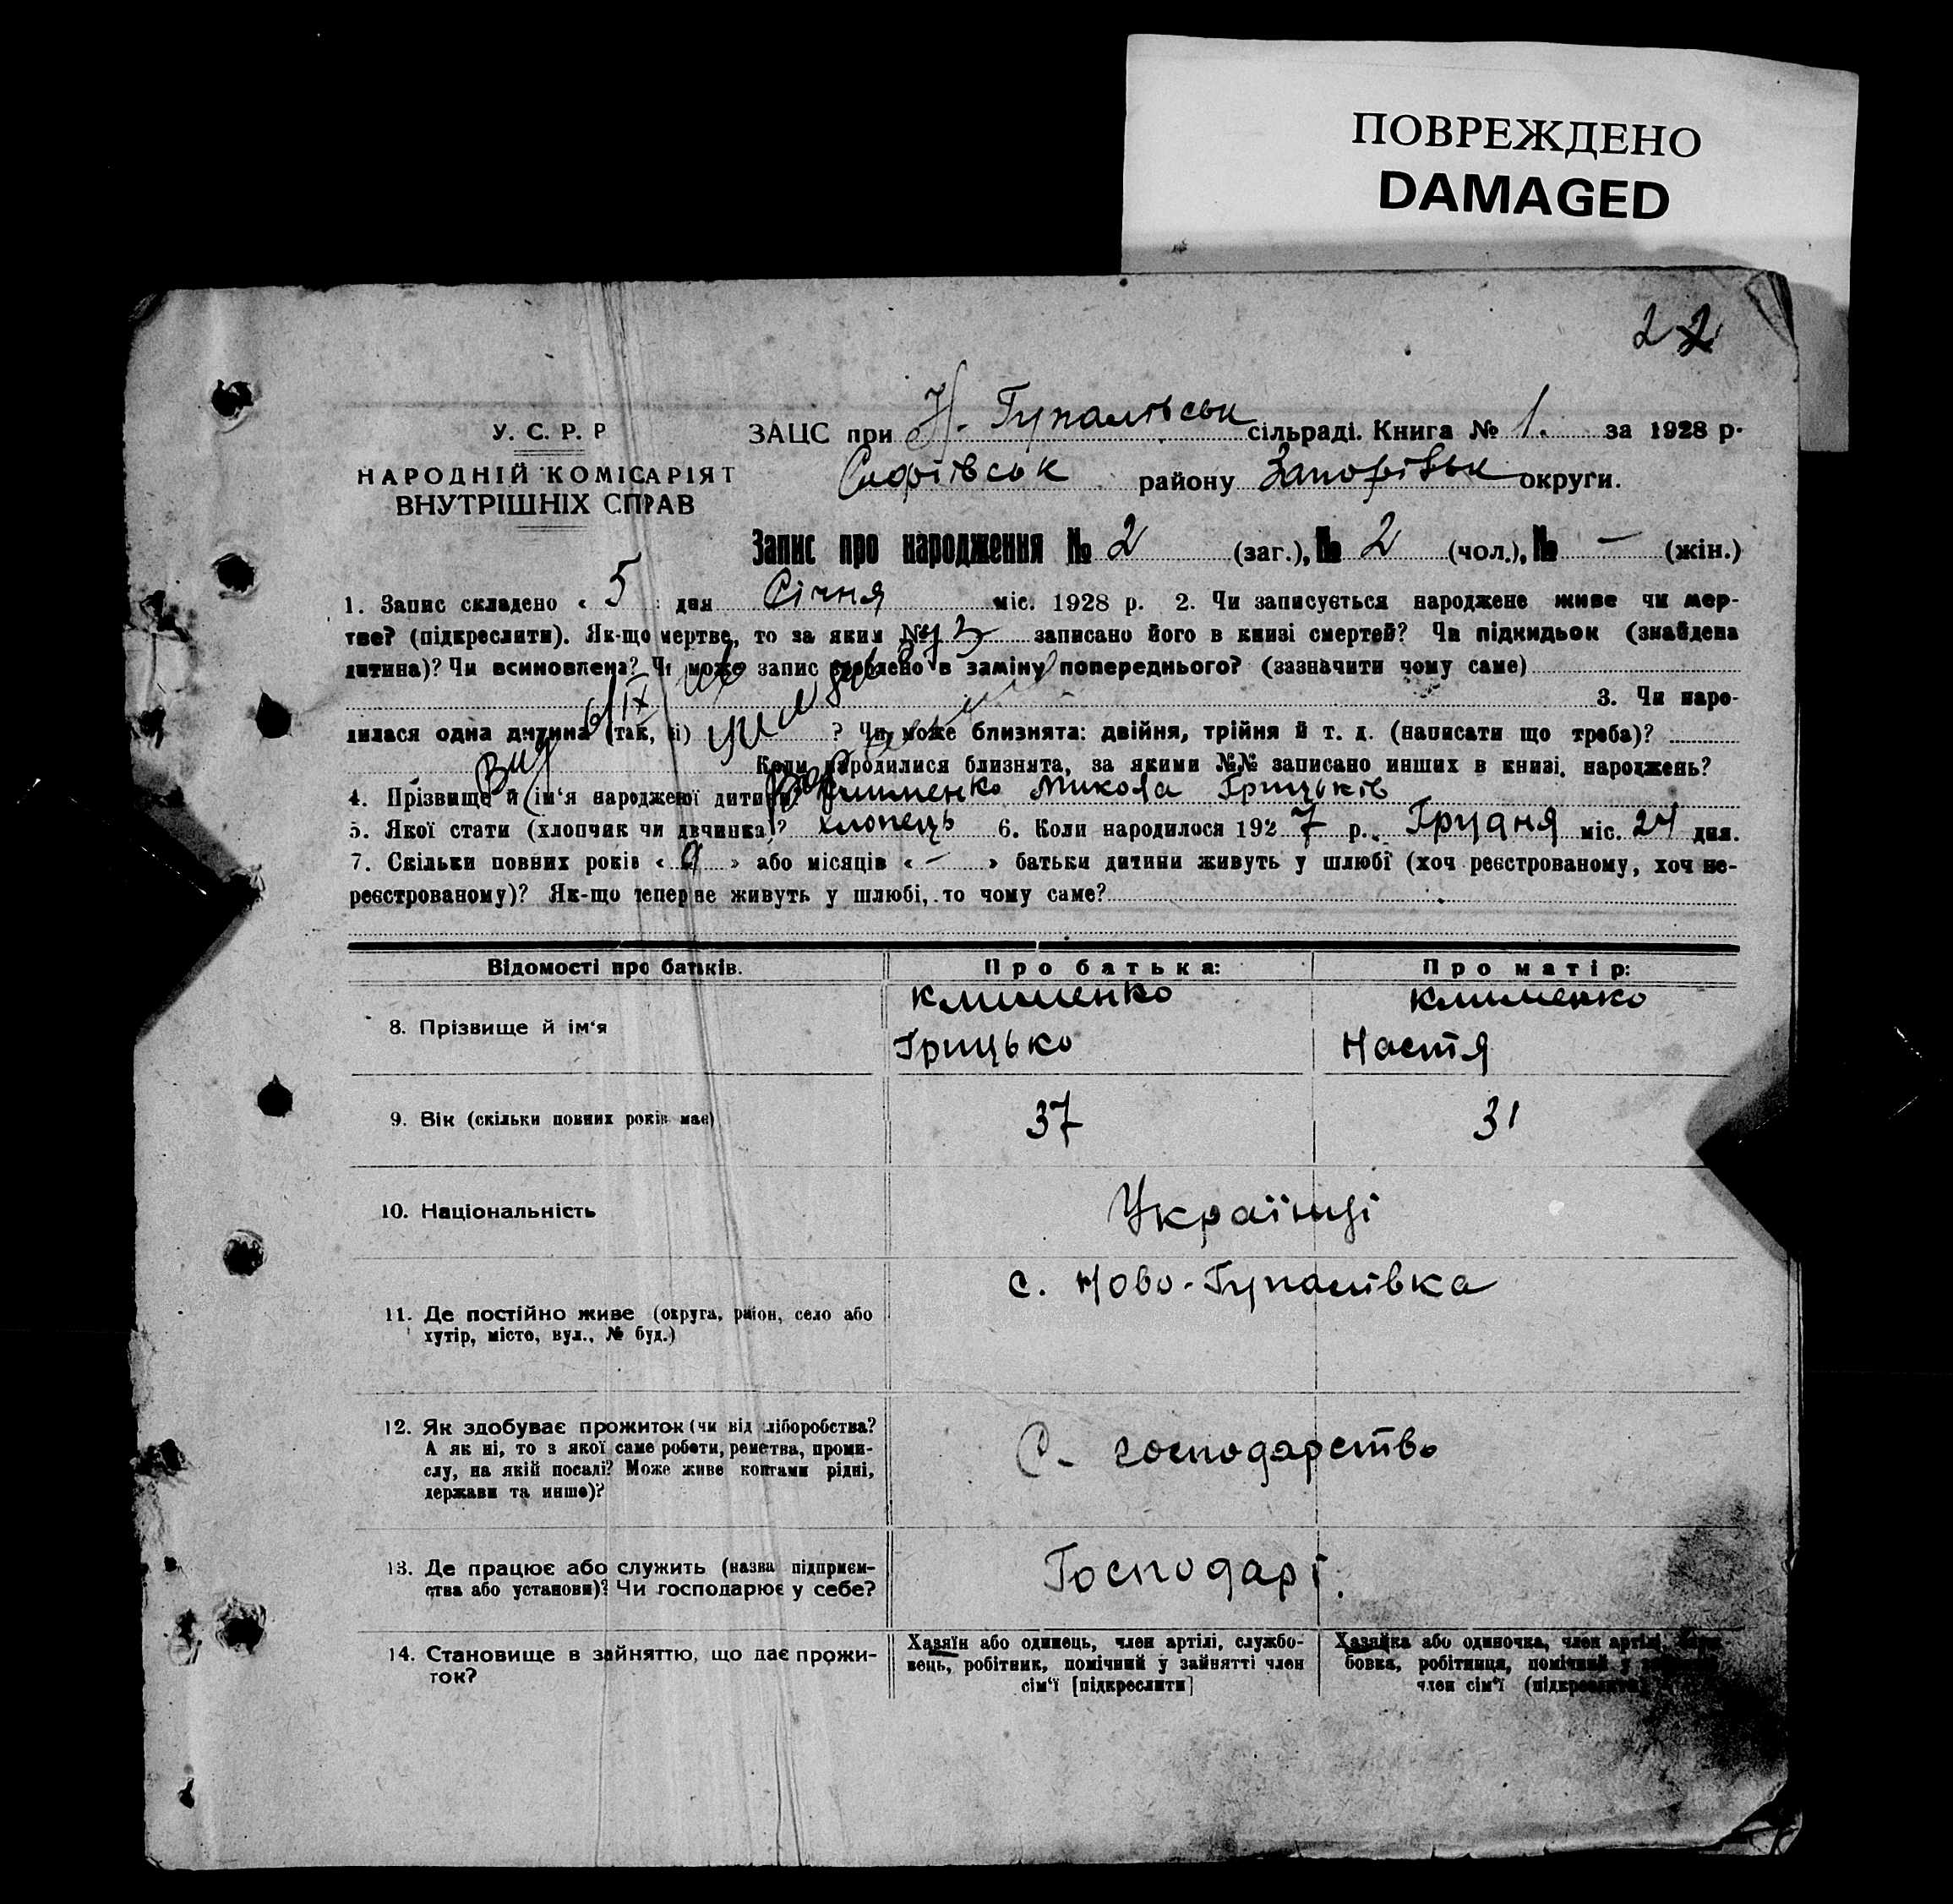 ПОВРЕЖДЕНО
DAMAGED
22
У. С. Р. Р
НАРОДНІЙ КОМІСАРІЯТ
ВНУТРІШНІХ СПРАВ
ЗАЦС при Н. Гупалівськ сільраді. Книга № 1. за 1928 р.
Софіївськ району Запорізьк округи.
Запис про народження № 2 (заг.), № 2 (чол.), № – (жін.)
1. Запис складено « 5 : дня Січня міс. 1928 р. 2. Чи записується народжене живе чи мер-
тве? (підкреслити). Як-що мертве, то за яким № записано його в книзі смертей? Чи підкидьок (знайдена
дитина)? Чи всиновлена? Чи може запис зроблено в заміну попереднього? (зазначити чому саме)
3. Чи наро-
дилася одна дитина (так, ні) ? Чи може близнята: двійня, трійня й т. д. (написати що треба)?
Коли народилися близнята, за якими №№ записано инших в книзі, народжень?
4. Прізвище й ім'я народженої дитини? Клименко Микола Грицьків
5. Якої статі (хлопчик чи дівчинка)? хлопець 6. Коли народилося 1927 р. Грудня міс. 24 дня.
7. Скільки повних років « 9 » або місяців « – » батьки дитини живуть у шлюбі (хоч реєстрованому, хоч не-
реєстрованому)? Як-що тепер не живуть у шлюбі, то чому саме?
Відомості про батьків. Про батька: Про матір:
8. Прізвище й ім'я Клименко Грицько Клименко Настя
9. Вік (скільки повних років має) 37 31
10. Національність Українці
11. Де постійно живе (округа, район, село або
хутір, місто, вул., № буд.)
с. Ново-Гупалівка
12. Як здобуває прожиток (чи від хліборобства?
А як ні, то з якої саме роботи, ремества, проми-
слу, на якій посаді? Може живе коштами рідні,
держави та инше)?
С. господарство
13. Де працює або служить (назва підприєм-
ства або установи)? Чи господарює у себе?
Господарі.
14. Становище в зайняттю, що дає прожи-
ток?
Хазяїн або одинець, член артілі, службо-
вець, робітник, помічний у зайнятті член
сім'ї [підкреслити]
Хазяйка або одиночка, член артілі,
бовка, робітниця, помічний у
член сім'ї (підкреслити)